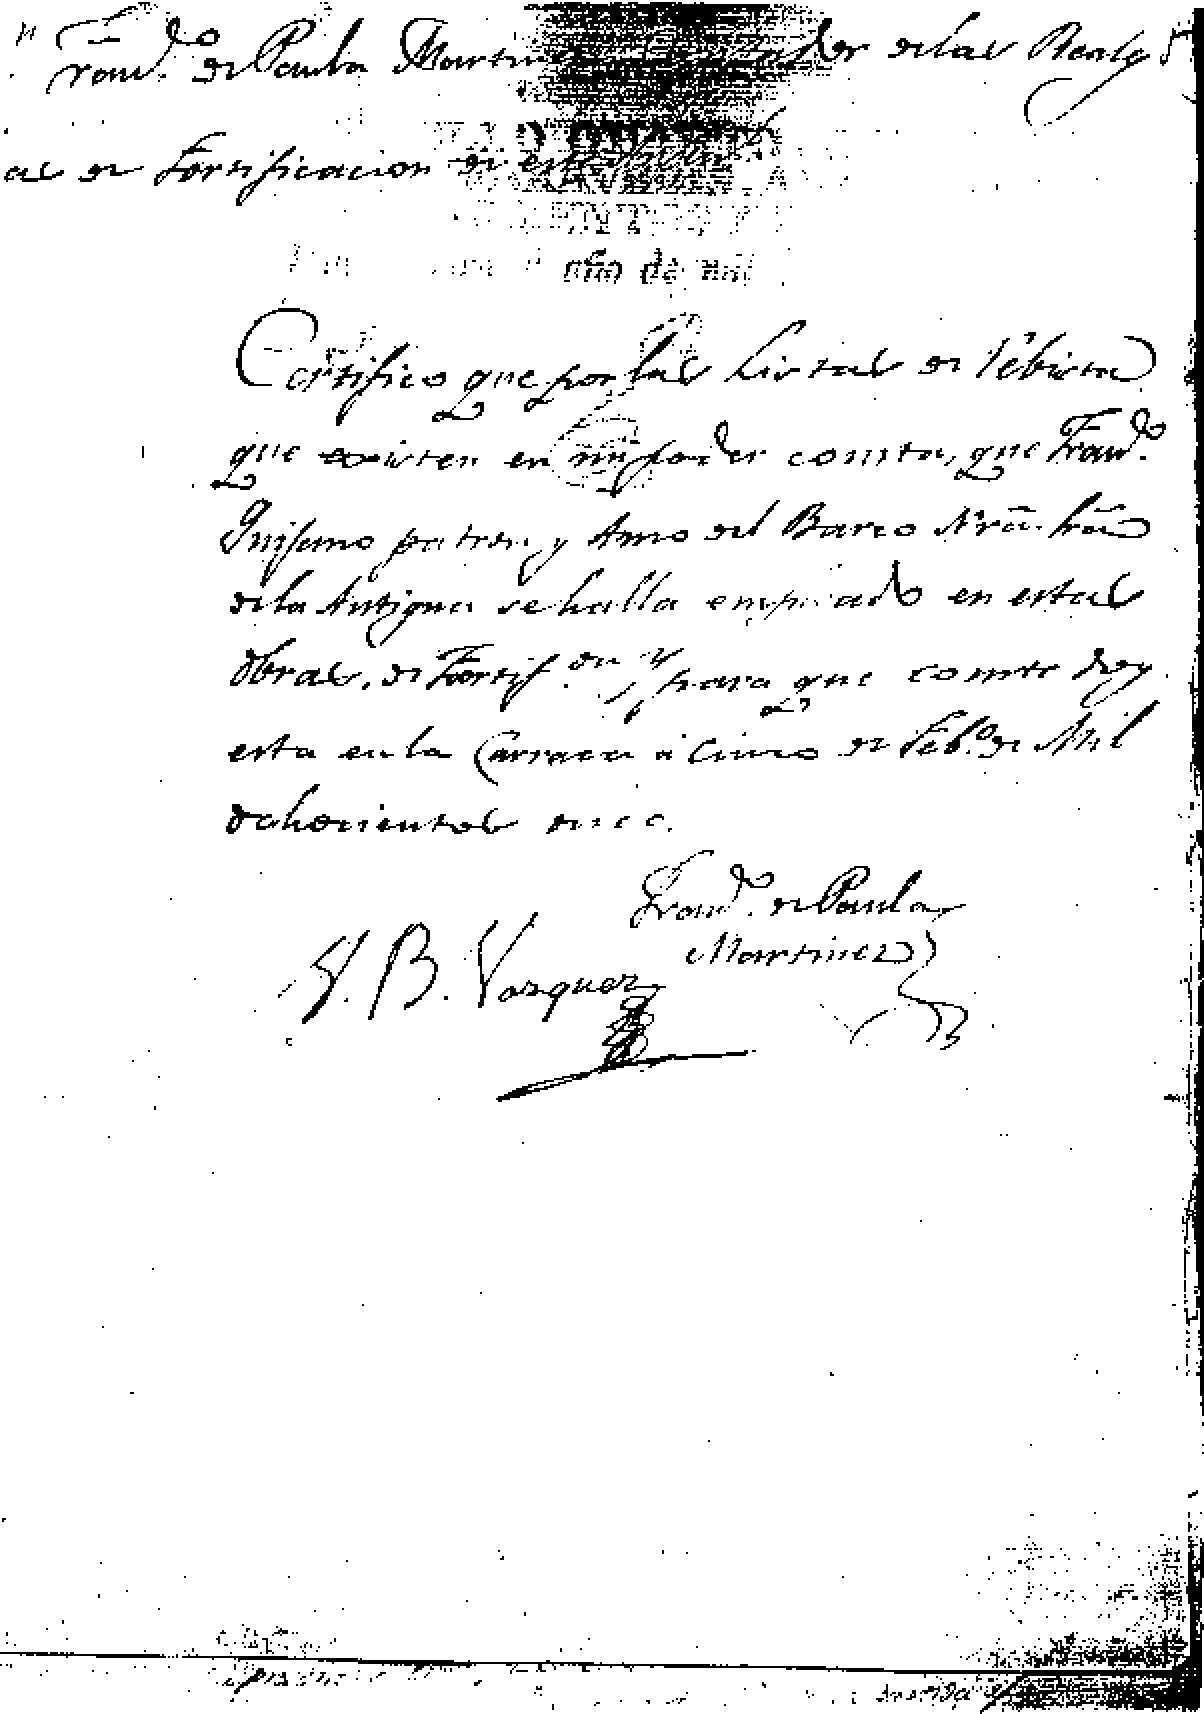 Fran.do de Paula Martinez de las Reales
as de Fortificacion de esta
año de mil
Certifico que por las Listas de rebista
que existen en mi poder consta, que Fran.do
Quijano patron y Amo del Barco Nrã. Srã
de la Antigua se halla empleado en estas
obras, de Fortif.on y para que conste doy
esta en la Carraca á Cinco de Feb.o de Mil
ochocientos once.
Fran.do de Paula
Martinez
V. B. Vazquez